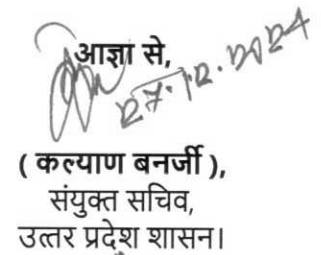 आज्ञा से,
27.12.2024
( कल्याण बनर्जी ),
संयुक्त सचिव,
उत्तर प्रदेश शासन।